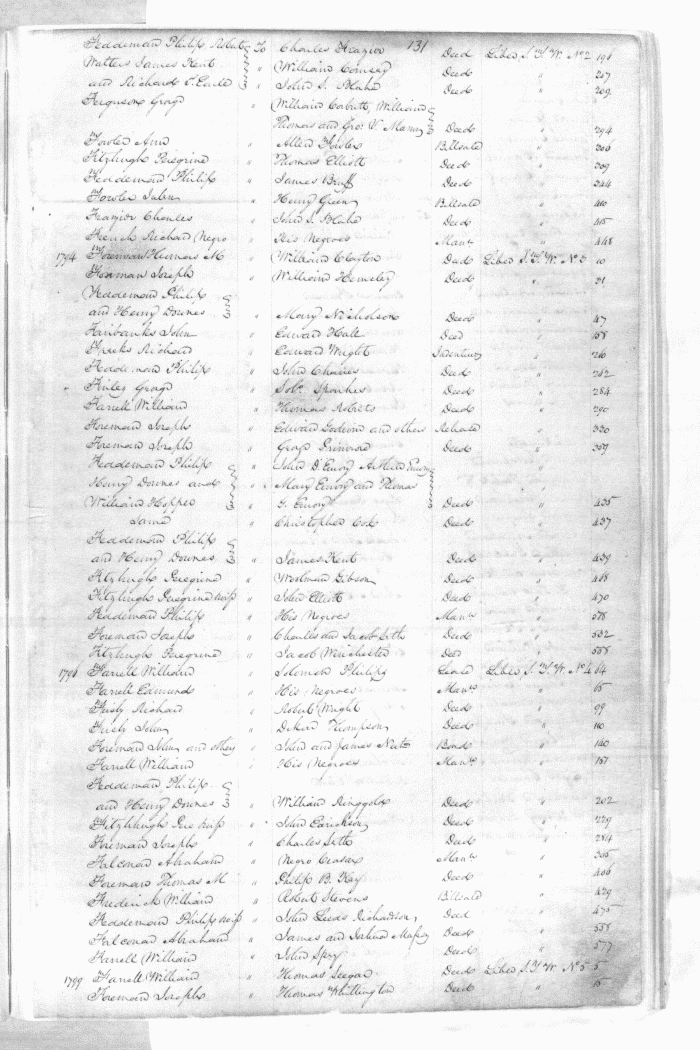 131
Feddeman Philip Robert To Charles Frazier Deed Liber S.T.W. No 2 196
Watters James Kent " William Comsey Deed " 207
and Richard T. Earle " John S. Blake Deed " 209
Ferguson Geog " William Corbett, William
Thomas and Geo. V. Mann Deed " 294
Fowler Ann " Allen Billsale " 300
Fitzhugh Peregrine " Thomas Elliott Deed " 309
Feddeman Philip " James Deed " 344
Fowler " Henry Green Billsale " 410
Frazier Charles " John S. Blake Deed " 415
French Richard Negro " His Negroes Manu " 448
1794 Foreman Thomas M " William Clayton Deed Liber S.T.W. No 3 10
Foreman Joseph " William Hemsley Deed " 31
Feddeman Philip
and Henry Downes " Mary Nicholson Deed " 47
Fairbanks John " Edward Hall Deed " 58
Freeks Richard " Edward Wright Indenture " 26
Feddeman Philip " John Chaires Deed " 262
Finley George " Solo. Sparkes Deed " 284
Farrell William " Thomas Roberts Deed " 290
Foreman Joseph " Edward Godwin and others Release " 330
Foreman Joseph " George Primrose Deed " 359
Feddeman Philip " John D. Emory Arthur Emory
Henry Downes and " Mary Emory and Thomas
William Hopper " G. Emory Deed " 435
Same " Christopher Cox Deed " 437
Feddeman Philip
and Henry Downes " James Kent Deed " 439
Fitzhugh Peregrine " Woolman Gibson Deed " 468
Fitzhugh Peregrine " John Elliott Deed " 470
Feddeman Philip " His Negroes Manu " 578
Foreman Joseph " Charles and Jacob Seth Deed " 582
Fitzhugh Peregrine " Jacob Winchester Deed " 588
1796 Farrell William " Solomon Philips Lease Liber S.T.W. No 4 14
Farrell Edmund " His Negroes Manu " 15
Fusly Richard " Robert Wright Deed " 99
Fusly John " Dekar Thompson Deed " 110
Foreman John and others " John and James Nuts Bond " 140
Farrell William " His Negroes Manu " 151
Feddeman Philip
and Henry Downes " William Ringgold Deed " 202
Fitzhugh " John Earickson Deed " 229
Foreman Joseph " Charles Seth Deed " 284
Falconar Abraham " Negro Manu " 355
Foreman Thomas M " Philip B. Key Deed " 406
Frederick William " Robert Stevens Billsale " 429
Feddeman Philip " John Leeds Richardson Deed " 475
Falconar Abraham " James and Joshua Deed " 558
Farrell William " John Spry Deed " 577
1799 Farrell William " Thomas Seegar Deed Liber S.T.W. No 5 5
Foreman Joseph " Thomas Whittington Deed " 15